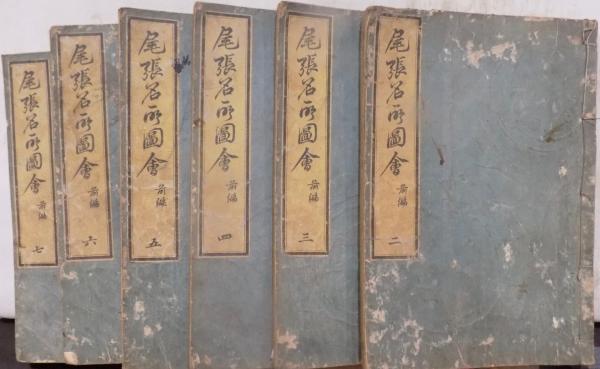 尾張名所圖會 前編 二
尾張名所圖會 前編 三
尾張名所圖會 前編 四
尾張名所圖會 前編 五
尾張名所圖會 前編 六
尾張名所圖會 前編 七